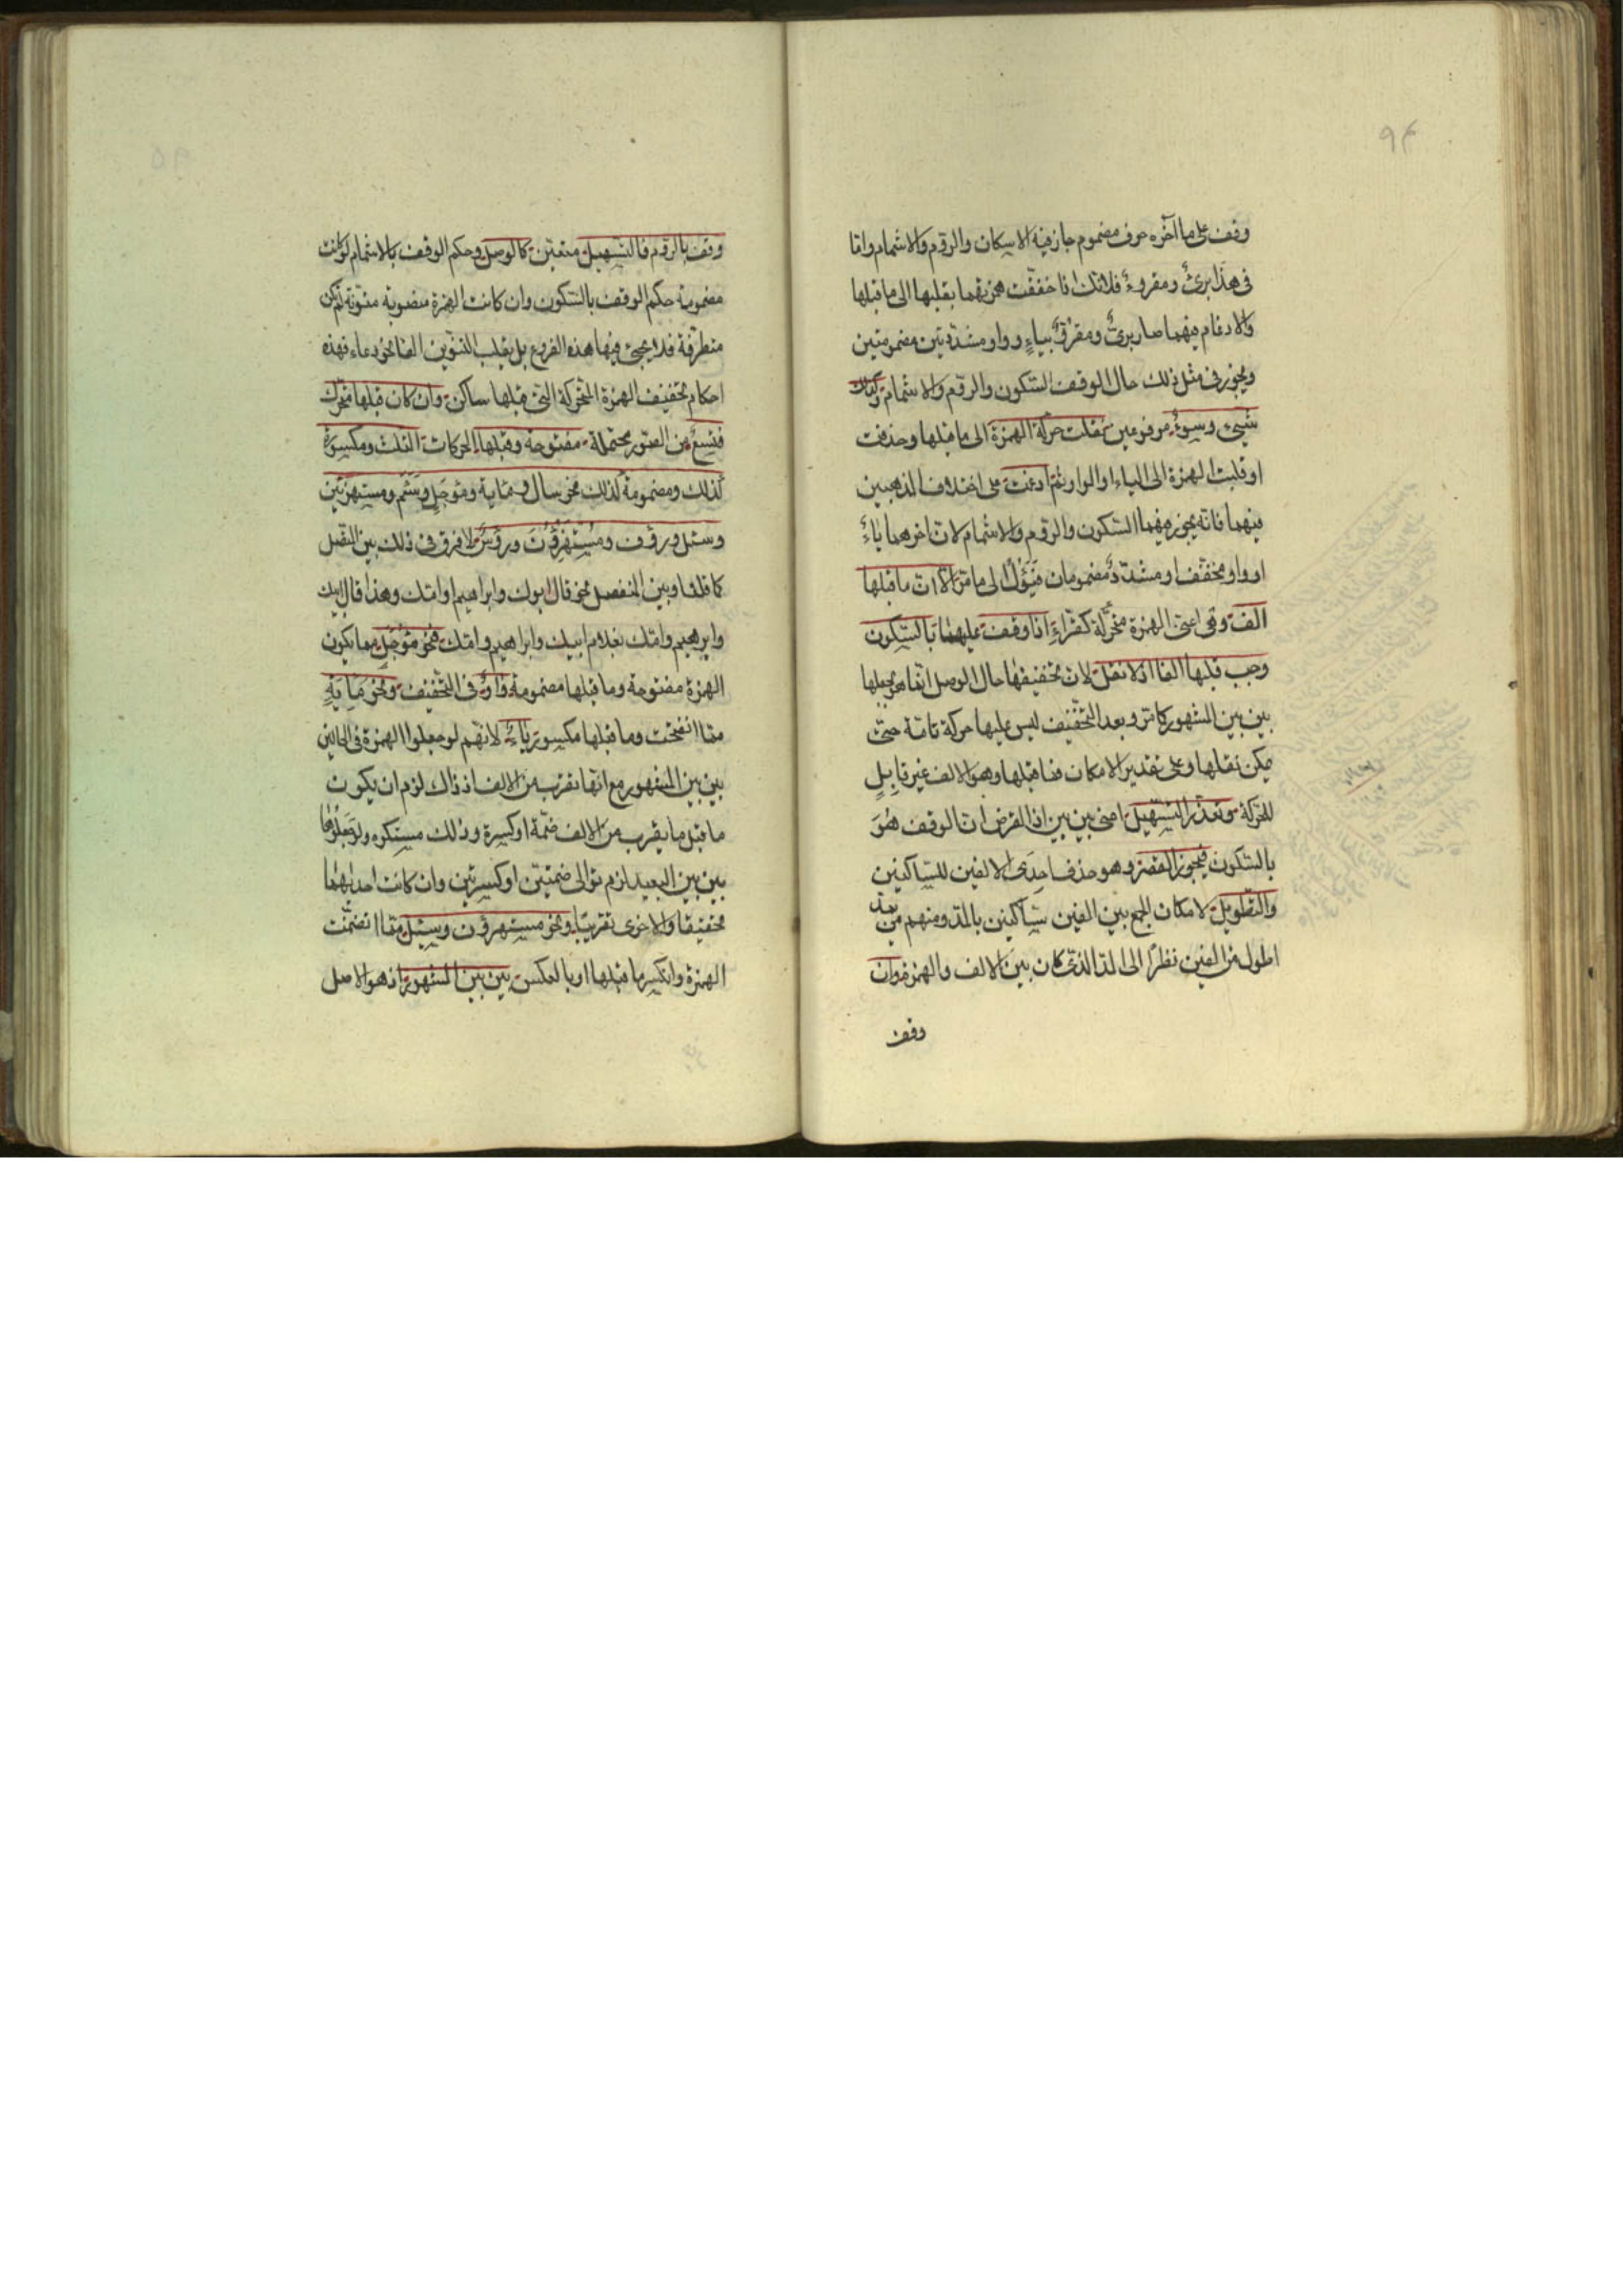 ٩٤
وقف على ما آخره حرف مضموم جاز فيه الاسكان والروم والاشمام واما
فى هذا برئ ومقروء فلانك اذا خففت همزتهما بقلبها الى ما قبلها
والادغام فيهما صار برىّ ومقروّ بياء وواو مشددتين مضمومتين
ويجوز فى مثل ذلك حال الوقف السكون والروم والاشمام وكذلك
شىء وسوء مرفوعين نقلت حركة الهمزة الى ما قبلها وحذفت
او قلبت الهمزة الى الياء او الواو ثم ادغمت على اختلاف المذهبين
فيهما فانه يجوز فيهما السكون والروم والاشمام لان آخرهما ياء
او واو مخفف او مشدد مضمومان فيؤل الى ما مر الا ان ما قبلها
الف وقى اعنى الهمزة متحركة كقراء اذا وقفت عليهما بالسكون
وجب قبلها الفا اذ لا نقل لان تخفيفها حال الوصل انما هو بجعلها
بين بين المشهور كما مر وبعد التخفيف ليس عليها حركة تامة حتى
يمكن نقلها وعلى تقدير الامكان فما قبلها وهو الالف غير قابل
للحركة وتعذر التسهيل اعنى بين بين اذ الفرض ان الوقف هو
بالسكون فيجوز القصر وهو حذف احدى الالفين للساكنين
والتطويل لامكان الجمع بين الفين ساكنين بالمد ومنهم من يمد
اطول من الفين نظرا الى المد الذى كان بين الالف والهمزة وان
وقف
وقف بالروم فالتسهيل متعين كالوصل وحكم الوقف بالاشمام لو كانت
مضمومة حكم الوقف بالسكون وان كانت الهمزة منصوبة منونة لم تكن
متطرفة فلا يجئ فيها هذه الفروع بل يقلب التنوين الفا نحو دعاء فهذه
احكام تخفيف الهمزة المتحركة التى قبلها ساكن وان كان قبلها متحرك
فتسع من الصور محتملة مفتوحة وقبلها الحركات الثلث ومكسورة
كذلك ومضمومة كذلك نحو سال و مائة ومؤجل وسئم ومستهزئين
وسئل ورؤف ومستهزؤن ورؤس لا فرق فى ذلك بين المتصل
كما قلنا وبين المنفصل نحو قال ابوك وابراهيم وامك وهذا قال ابيك
وابراهيم وامك بغلام ابيك وابراهيم وامك فنحو مؤجل مما يكون
الهمزة مفتوحة وما قبلها مضمومة واو فى التخفيف ونحو مائة
مما انفتحت وما قبلها مكسور ياء لانهم لو جعلوا الهمزة فى الحالين
بين بين المشهور مع انها تقرب من الالف اذ ذاك لزم ان يكون
ما قبل ما يقرب من الالف ضمة او كسرة وذلك مستكره ولو جعلوها
بين بين البعيد لزم توالى ضمتين او كسرتين وان كانت احديهما
تحقيقا والاخرى تقريبا ونحو مستهزؤن وسئل مما انضمت
الهمزة وانكسر ما قبلها او بالعكس بين بين المشهور اذ هو الاصل